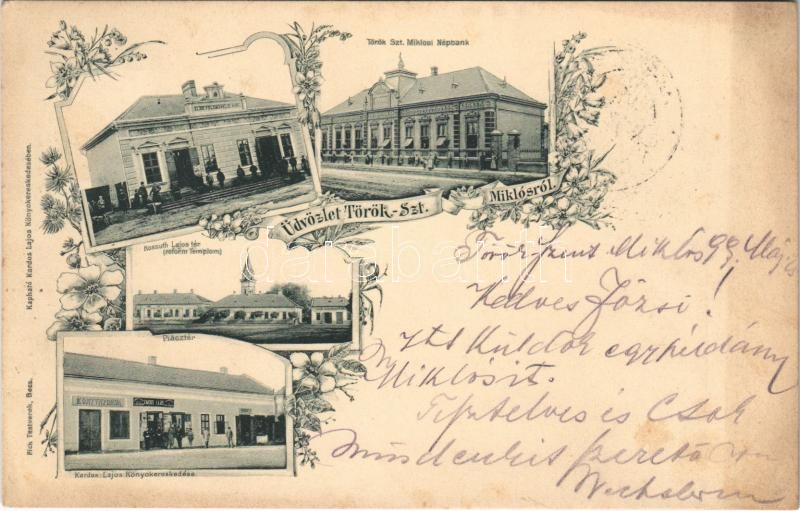 Török Szt. Miklosi Népbank
Üdvözlet Török-Szt. Miklósról.
Kossuth Lajos tér
(reform Templom)
Piacztér
Kardos Lajos Könyokereskedése.
Kapható Kardos Lajos Könyokereskedésében.
Rich. Testverek, Becs.
darabanth
Törökszent Miklós 99
Kedves Józsi!
Itt küldök egy példány
Miklósit.
Tisztelves is Csok
Mindenkit szerető